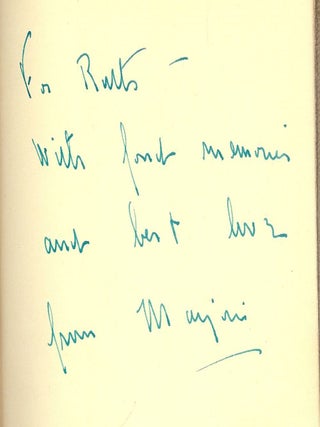 For Ruth –
With fond memories
and best love
from Marjorie